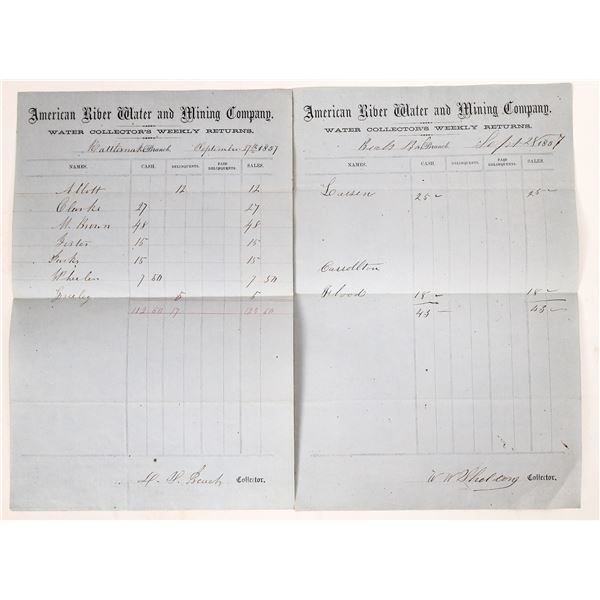 American River Water and Mining Company.
WATER COLLECTOR'S WEEKLY RETURNS.
Rattlesnake Branch September 1857
NAMES. CASH. DELINQUENTS. PAID DELINQUENTS. SALES.
Abbott 12 12
Clarke 27 27
M. Brown 48 48
Foster 15 15
Parks 15 15
Wheeler 7 50 7 50
5 5
112 50 17
Collector.
American River Water and Mining Company.
WATER COLLECTOR'S WEEKLY RETURNS.
Branch Sept 28 1857
NAMES. CASH. DELINQUENTS. PAID DELINQUENTS. SALES.
Larsen 25 25
Carrollton
Flood 18 18
43 43
Collector.